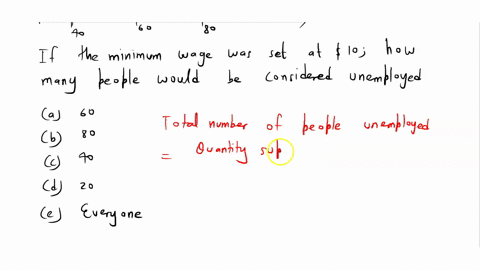 40 60 80
If the minimum wage was set at $10; how
many people would be considered unemployed
(a) 60
(b) 80
(c) 40
(d) 20
(e) Everyone
Total number of people unemployed
= Quantity sup